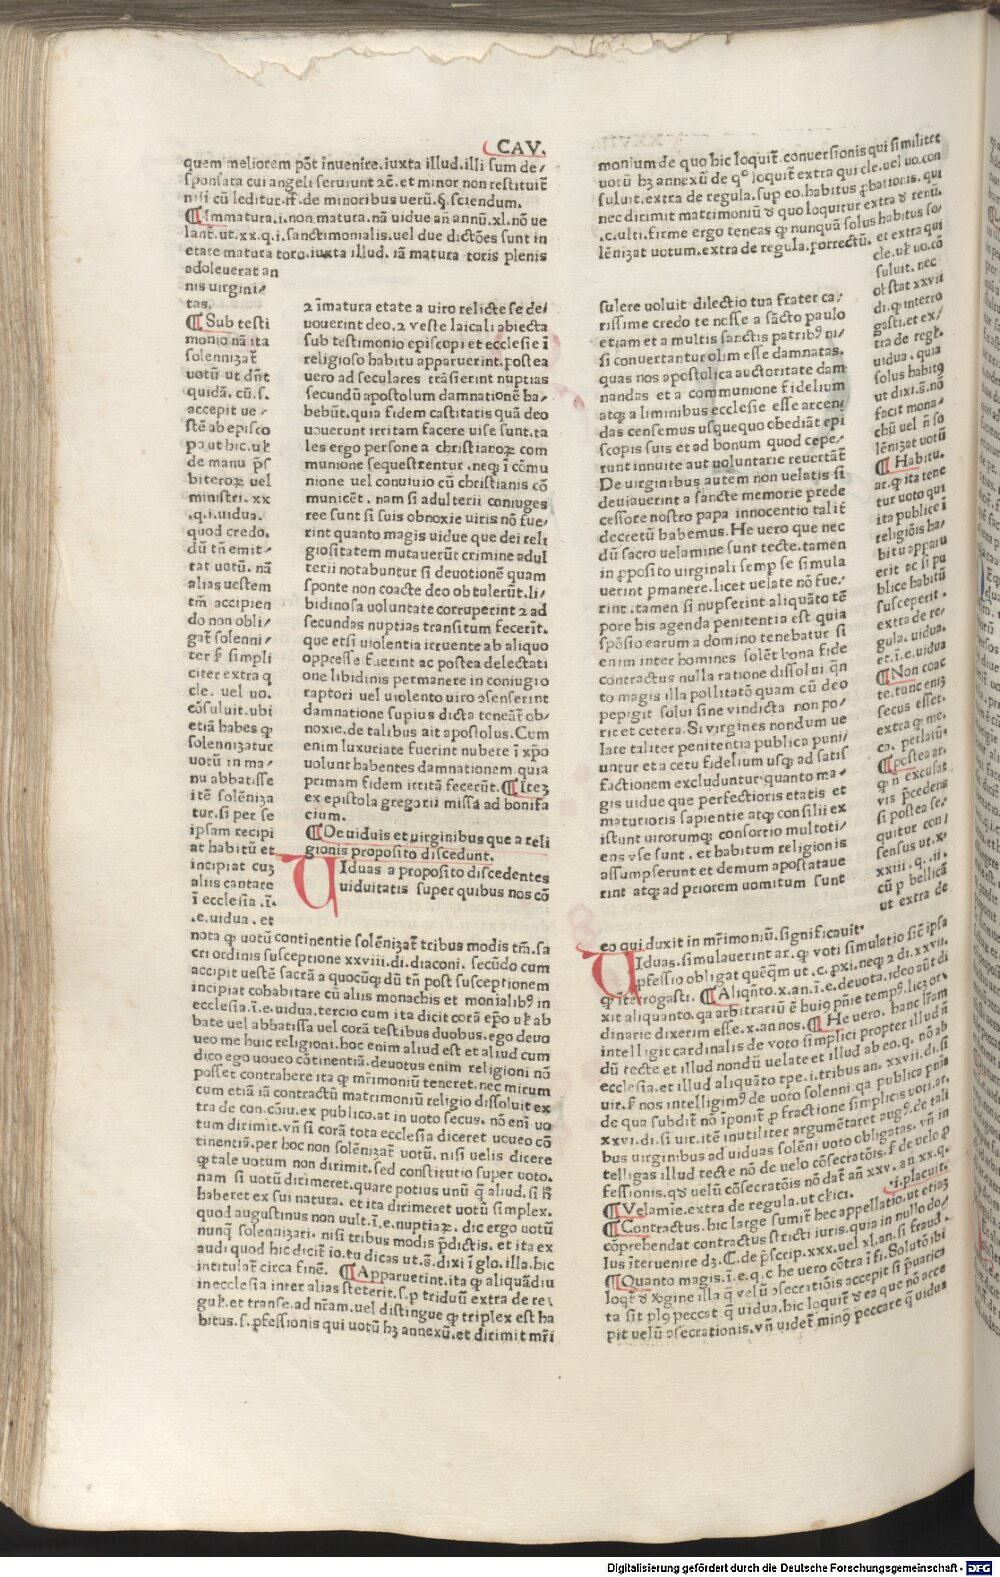 CAV.
quem meliorem põt īnuenire.iuxta illud.illi sum de/
sponsata cui angeli seruiunt ⁊c̄.et minor non restituit̄
nisi cū leditur.ff.de minoribus uerū.§.sciendum.
¶Immatura.i.non matura.nā uidue an̄ annū.xl.nō ue
lant̄.ut.xx.q.i.sanctimonialis.uel due dictōes sunt in
etate matura toro.iuxta illud.iā matura toris plenis
adoleuerat an
nis uirgini/
tas.
¶Sub testi
monio nā ita
solennizat̄
uotū ut dn̄t
quidā.cū.s.
accepit ue/
stē ab episco
po ut hic.uł
de manu p̄s
biteroꝝ uel
ministri.xx
.q.i.uidua.
quod credo.
dū tn̄ emit/
tat uotū.nā
alias uestem
tm̄ accipien
do non obli/
gat̄ solenni/
ter ꝭ simpli
citer extra q
cle. uel uo.
cōsuluit.ubi
etiā habes ꝙ
solennizatur
uotū in ma/
nu abbatisse
itē solēniza
tur.si per se
ipsam recipi
at habitū et
incipiat cuꝫ
aliis cantare
ī ecclesia.ī.
.e.uidua.et
⁊ īmatura etate a uiro relicte se de/
uouerint deo.⁊ ueste laicali abiecta
sub testimonio episcopi et ecclesie ī
religioso habitu apparuerint.postea
uero ad seculares trāsierint nuptias
secundū apostolum damnationē ha/
bebūt.quia fidem castitatis quā deo
uouerunt irritam facere uise sunt.ta
les ergo persone a christiaroꝝ com
munione sequestrentur.neqꝫ ī cōmu
nione uel conuiuio cū christianis cō
municēt.nam si adulterii coniuges
ree sunt si suis obnoxie uiris nō fue/
rint quanto magis uidue que dei reli
giositatem mutauerūt crimine adul
terii notabuntur si deuotionē quam
sponte non coacte deo obtulerūt.li/
bidinosa uoluntate corruperint ⁊ ad
secundas nuptias transitum fecerīt.
que etsi uiolentia irruente ab aliquo
oppresse fuerint ac postea delectati
one libidinis permanere in coniugio
raptori uel uiolento uiro ɔsenserint
damnatione supius dicta teneāt̄ ob/
noxie.de talibus ait apostolus.Cum
enim luxuriate fuerint nubere ī xp̄o
uolunt habentes damnationem.quia
primam fidem irritā fecerūt.¶Iteꝫ
ex epistola gregorii missa ad bonifa
cium.
¶De uiduis et uirginibus que a reli
gionis proposito discedunt.
UIduas a proposito discedentes
uiduitatis super quibus nos cō
nota ꝙ uotū continentie solēnizat̄ tribus modis tm̄.sa
cri ordinis susceptione xxviii.di.diaconi.secūdo cum
accipit uestē sacrā a quocūqꝫ dū tn̄ post susceptionem
incipiat cohabitare cū aliis monachis et monialibꝰ in
ecclesia.ī.e.uidua.tercio cum ita dicit corā ep̄o uł ab
bate uel abbatissa uel corā testibus duobus.ego deuo
ueo me huic religioni.hoc enim aliud est et aliud cum
dico ego uoueo cōtinentiā.deuotus enim religioni nō
posset contrahere ita ꝙ mr̄imoniū teneret.nec mirum
cum etiā iā contractū matrimoniū religio dissoluit ex
tra de con.cōiu.ex publico.at in uoto secus. nō enī uo
tum dirimit.vn̄ si corā tota ecclesia diceret uoueo cō
tinentiā.per hoc non solēnizat̄ uotū.nisi uelis dicere
ꝙ tale uotum non dirimit.sed constitutio super uoto.
nam si uotū dirimeret.quare potius unū q̄ aliud.si ħ
haberet ex sui natura. et ita dirimeret uotū simplex.
quod augustinus non uult.ī.e.nuptiaꝝ. dic ergo uotū
nunq̄ solennizari. nisi tribus modis p̄dictis. et ita ex
audi quod hic dicit̄ io.tu dicas ut.s̄.dixi ī glo.illa.hic
intitulat̄ circa finē. ¶Apparuerint.ita ꝙ aliquādiu
in ecclesia inter alias steterit.s.p triduū extra de re/
guł.et transe.ad nr̄am.uel distingue ꝙ triplex est ha
bitus.s.ꝓfessionis qui uotū hꝫ annexū.et dirimit mr̄i
monium de quo hic loquit̄.conuersionis qui similiter
uotū hꝫ annexū de qº loquit̄ extra qui cle.uel uo.con
suluit.extra de regula.sup eo.habitus ꝓbationis. qui
nec dirimit matrimoniū de quo loquitur extra de renū.
.c.ulti.firme ergo teneas ꝙ nunquā solus habitus so/
lēnizat uotum.extra de regula.porrectū. et extra qui
cle.uł uo.cō
suluit. nec
obstat xxvii
di.ꝙ interro
gasti.et ex/
tra de regł.
uidua. quia
solus habitꝰ
ut dixi.s̄.nō
facit mona/
chū uel n̄ so
lēnizat uotū
¶Habitu.
ar.ꝙ ita tene
tur uoto qui
ita publice ī
religiōis ha/
bitu apparu
erit ac si pu
blice habitū
susceperit.
extra de re/
gula. uidua.
et.ī.e.uidua
¶Non coac
te.tunc eniꝫ
secus esset.
extra q me.
ca. perlatū.
¶postea ar.
ꝙ n̄ excusat
vis p̄cedens
si postea se/
quitur con/
sensus ut.x/
xxiii.q..ii.
cū p bellicā
ut extra de
sulere uoluit dilectio tua frater ca/
rissime credo te nosse a sācto paulo
etiam et a multis sanctis patribꝰ ni/
si conuertantur olim esse damnatas.
quas nos apostolica auctoritate dam
nandas et a communione fidelium
atqꝫ a liminibus ecclesie esse arcen/
das censemus usquequo obediāt epi
scopis suis et ad bonum quod cepe/
runt innuite aut uoluntarie reuertāt̄
De uirginibus autem non uelatis si
deuiauerint a sancte memorie prede
cessore nostro papa innocentio talit̄
decretū habemus.He uero que nec
dū sacro uelamine sunt tecte.tamen
in ꝓposito uirginali semp se simula
uerint pmanere.licet uelate nō fue/
rint.tamen si nupserint aliquāto tē
pore his agenda penitentia est quia
spōsio earum a domino tenebatur si
enim inter homines solēt bona fide
contractus nulla ratione dissolui q̄n
to magis illa pollitatō quam cū deo
pepigit solui sine vindicta non po/
rit et cetera.Si virgines nondum ue
late taliter penitentia publica puni/
untur et a cetu fidelium usqꝫ ad satis
factionem excluduntur quanto ma/
gis uidue que perfectioris etatis et
maturioris sapientie atqꝫ consilii ex
istunt uirorumqꝫ consortio multoti/
ens vse sunt.et habitum religionis
assumpserunt et demum apostataue
rint atqꝫ ad priorem uomitum sunt
eo qui duxit in mr̄imoniū.significauit.
UIduas.simulauerint ar.ꝙ voti simulatio sic̄ ipsa
ꝓfessio obligat quēq̄m ut.c.ꝓxi.neqꝫ ⁊ di.xxvii.
ꝙ īterrogasti. ¶Aliqn̄to.x.an.ī.e.deuota.ideo aūt di
xit aliquanto.qa arbitrariū ē huiꝰ pn̄ie tempꝰ.licꝫ or/
dinarie dixerim esse.x.annos.¶He uero. hanc lr̄am
intelligit cardinalis de voto simplici propter illud n̄
dū tecte et illud nondū uelate et illud ab eo.q. nō ab
ecclesia.et illud aliquāto tpe.i.tribus an. xxvii.di.si
uir.ꝭ nos intelligimꝰ de uoto solenni qa publica pn̄ia
de qua subdit̄ nō īponit̄ ꝓ fractione simplicis voti.ar.
xxvi.di.si uir.itē inutiliter argumētaret̄ augꝰ.de tali
bus uirginibus ad uiduas solēni uoto obligatas. vn̄ in
telligas illud tecte nō de uelo cōsecratōis.ꝭ de uelo ꝓ
fessionis.qꝛ uelū cōsecratōis nō dat̄ an̄ xxv. an̄ xx.q.
.i.placuit.
¶Velamie.extra de regula.ut clici.
¶Contractus.hic large sumit̄ hec appellatio.ut etiaꝫ
cōprehendat contractus stricti iuris.quia in nullo do/
lus īteruenire dꝫ.C.de p̄scrip.xxx.uel xl.an.si fraud.
¶Quanto magis.ī.e.q.c he uero cōtra ī fi.Soluto ibi
loqt̄ de v̄gine illa q̄ velū ɔsecratiōis accepit si p̄uarica
ta sit plꝰ peccat q̄ uidua.hic loquit̄ de ea que nō acce
pit uelū ɔsecrationis.vn̄ uidet̄ minꝰ peccare q̄ uidua
Digitalisierung gefördert durch die Deutsche Forschungsgemeinschaft - DFG